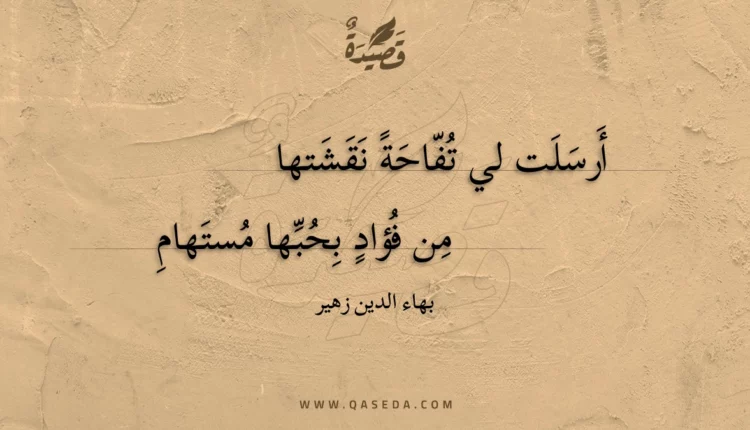 قَصِيدَةٌ
أَرسَلَت لي تُفّاحَةً نَقَشَتها
مِن فُؤادٍ بِحُبِّها مُستَهامِ
بهاء الدين زهير
WWW.QASEDA.COM